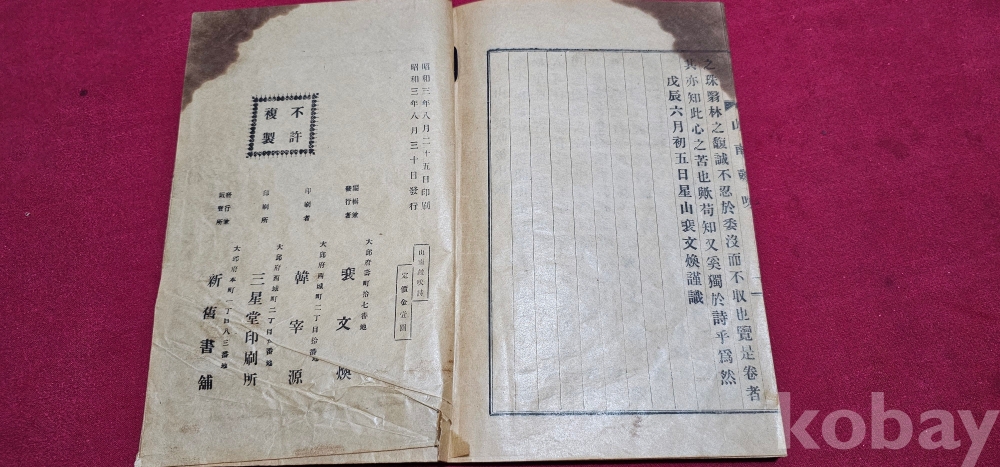 之珠翳林之馥誠不忍於委沒而不取也覽是卷者
其亦知此心之苦也歟苟知又奚獨於詩乎爲然
戊辰六月初五日星山裵文煥謹識
昭和三年八月二十五日印刷
昭和三年八月三十日發行
定價金壹圓
不許
複製
發行者
大邱府壽町拾七番地
裵文煥
印刷者
大邱府西城町二丁目拾番地
韓宰源
印刷所
大邱府西城町二丁目
三星堂印刷所
大邱府本町一丁目八三番地
新舊書舖
kobay